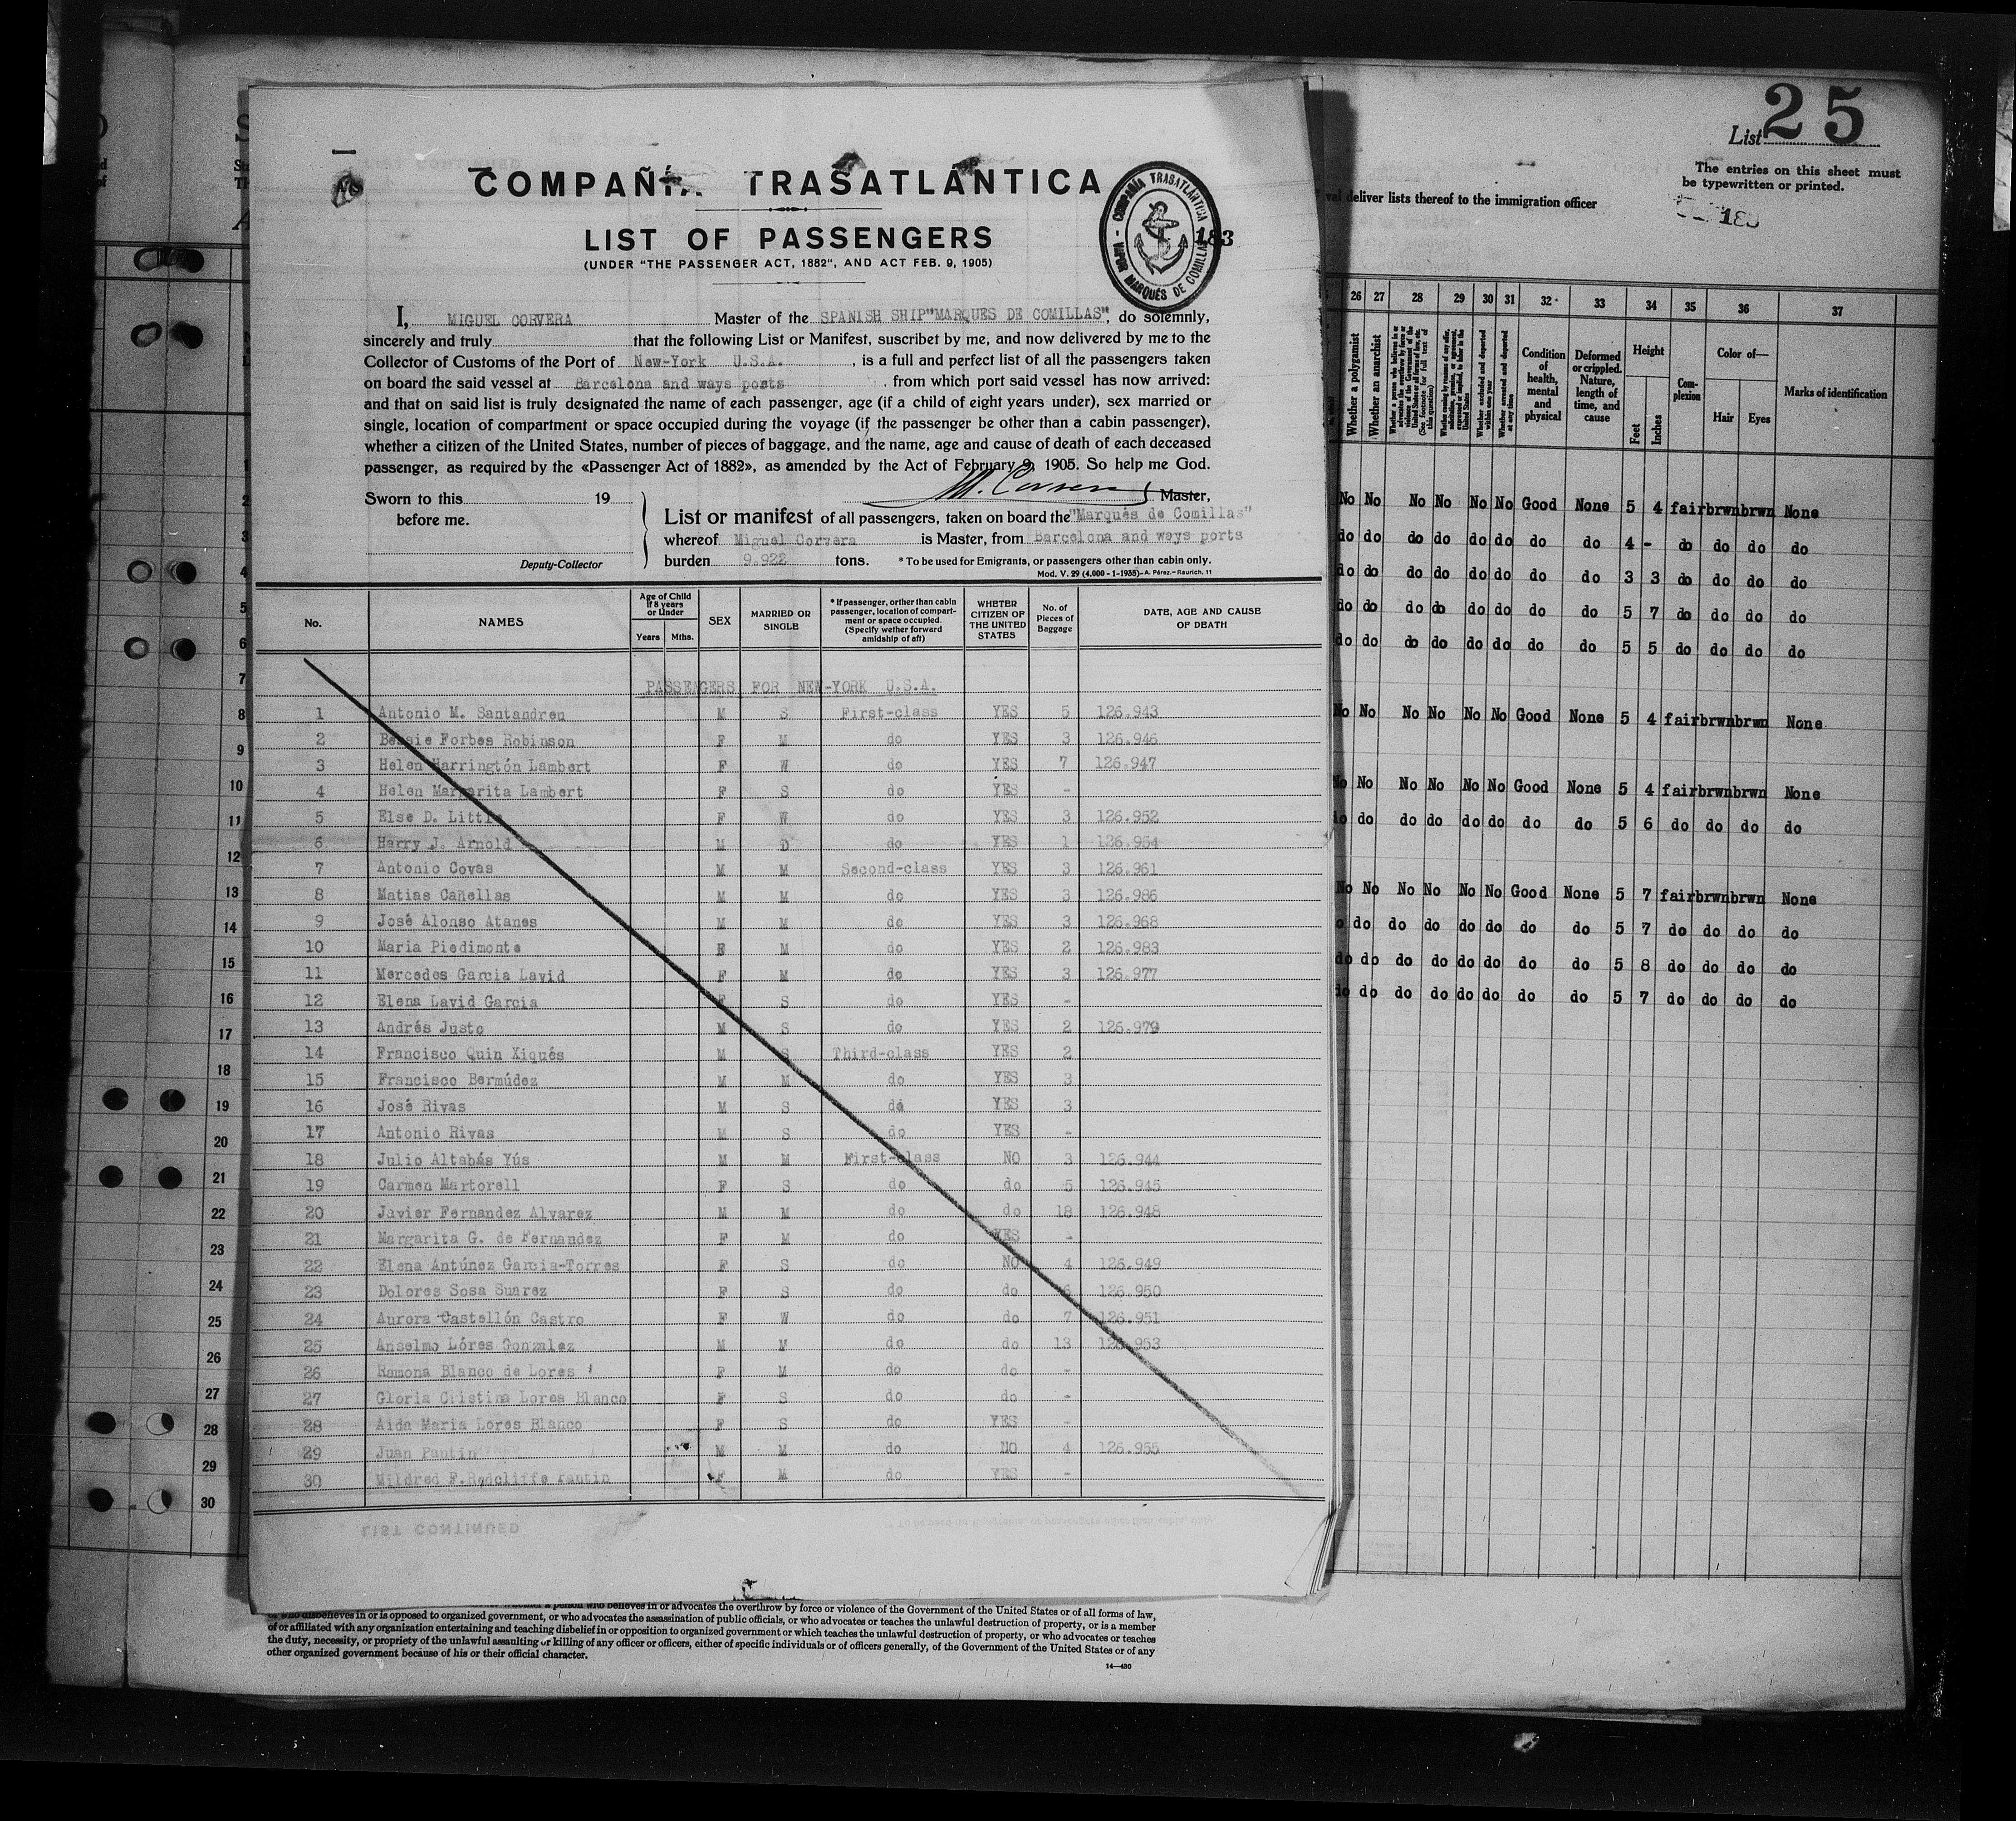 COMPAÑÍA TRASATLÁNTICA
LIST OF PASSENGERS
(UNDER "THE PASSENGER ACT, 1882", AND ACT FEB. 9, 1905)
COMPAÑIA TRASATLANTICA - VAPOR MARQUÉS DE COMILLAS
183
I, MIGUEL CORVERA Master of the SPANISH SHIP"MARQUES DE COMILLAS", do solemnly,
sincerely and truly that the following List or Manifest, suscribet by me, and now delivered by me to the
Collector of Customs of the Port of New-York U.S.A. , is a full and perfect list of all the passengers taken
on board the said vessel at Barcelona and ways posts , from which port said vessel has now arrived:
and that on said list is truly designated the name of each passenger, age (if a child of eight years under), sex married or
single, location of compartment or space occupied during the voyage (if the passenger be other than a cabin passenger),
whether a citizen of the United States, number of pieces of baggage, and the name, age and cause of death of each deceased
passenger, as required by the «Passenger Act of 1882», as amended by the Act of February 9, 1905. So help me God.
Sworn to this 19
before me.
Deputy-Collector
M. Corvera Master,
List or manifest of all passengers, taken on board the "Marqués de Comillas"
whereof Miguel Corvera is Master, from Barcelona and ways ports
burden 9.922 tons. * To be used for Emigrants, or passengers other than cabin only.
Mod. V. 29 (4.000 - 1-1935)-A. Pérez.-Raurich, 11
No. NAMES Age of Child If 8 years or Under Years Mths. SEX MARRIED OR SINGLE * If passenger, orther than cabin passenger, location of compartment or space occupied. (Specify wether forward amidship of aft) WHETER CITIZEN OF THE UNITED STATES No. of Pieces of Baggage DATE, AGE AND CAUSE OF DEATH
PASSENGERS FOR NEW-YORK U.S.A.
1 Antonio M. Santandreu M S First-class YES 5 126.943
2 Bessie Forbes Robinson F M do YES 3 126.946
3 Helen Harringtón Lambert F W do YES 7 126.947
4 Helen Margarita Lambert F S do YES -
5 Else D. Little F W do YES 3 126.952
6 Harry J. Arnold M D do YES 1 126.954
7 Antonio Covas M M Second-class YES 3 126.961
8 Matias Cañellas M M do YES 3 126.986
9 José Alonso Atanes M M do YES 3 126.968
10 Maria Piedimonte F M do YES 2 126.983
11 Mercedes Garcia Lavid F M do YES 3 126.977
12 Elena Lavid Garcia F S do YES -
13 Andrés Justo M S do YES 2 126.979
14 Francisco Quin Xiqués M S Third-class YES 2
15 Francisco Bermúdez M M do YES 3
16 José Rivas M S do YES 3
17 Antonio Rivas M S do YES -
18 Julio Altabás Yús M M First-class NO 3 126.944
19 Carmen Martorell F S do do 5 126.945
20 Javier Fernandez Alvarez M M do do 18 126.948
21 Margarita G. de Fernandez F M do YES -
22 Elena Antúnez Garcia-Torres F S do NO 4 126.949
23 Dolores Sosa Suarez F S do do 6 126.950
24 Aurora Castellón Castro F W do do 7 126.951
25 Anselmo Lóres Gonzalez M M do do 13 126.953
26 Ramona Blanco de Lores F M do do -
27 Gloria Cristina Lores Blanco F S do do -
28 Aida Maria Lores Blanco F S do YES -
29 Juan Pantin M M do NO 4 126.955
30 Mildred F.Radcliffe Pantin F M do YES -
of who disbelieves in or is opposed to organized government, or who advocates the assassination of public officials, or who advocates or teaches the unlawful destruction of property, or is a member
of or affiliated with any organization entertaining and teaching disbelief in or opposition to organized government or which teaches the unlawful destruction of property, or who advocates or teaches
the duty, necessity, or propriety of the unlawful assaulting or killing of any officer or officers, either of specific individuals or of officers generally, of the Government of the United States or of any
other organized government because of his or their official character.
14—430
List 25
The entries on this sheet must
be typewritten or printed.
183
deliver lists thereof to the immigration officer
26 27 28 29 30 31 32 33 34 35 36 37
Whether a polygamist Whether an anarchist Condition of health, mental and physical Deformed or crippled. Nature, length of time, and cause Height Feet Inches Complexion Color of— Hair Eyes Marks of identification
No No No No No No Good None 5 4 fair brwn brwn None
do do do do do do do do 4 - do do do do
do do do do do do do do 3 3 do do do do
do do do do do do do do 5 7 do do do do
do do do do do do do do 5 5 do do do do
No No No No No No Good None 5 4 fair brwn brwn None
No No No No No No Good None 5 4 fair brwn brwn None
do do do do do do do do 5 6 do do do do
No No No No No No Good None 5 7 fair brwn brwn None
do do do do do do do do 5 7 do do do do
do do do do do do do do 5 8 do do do do
do do do do do do do do 5 7 do do do do